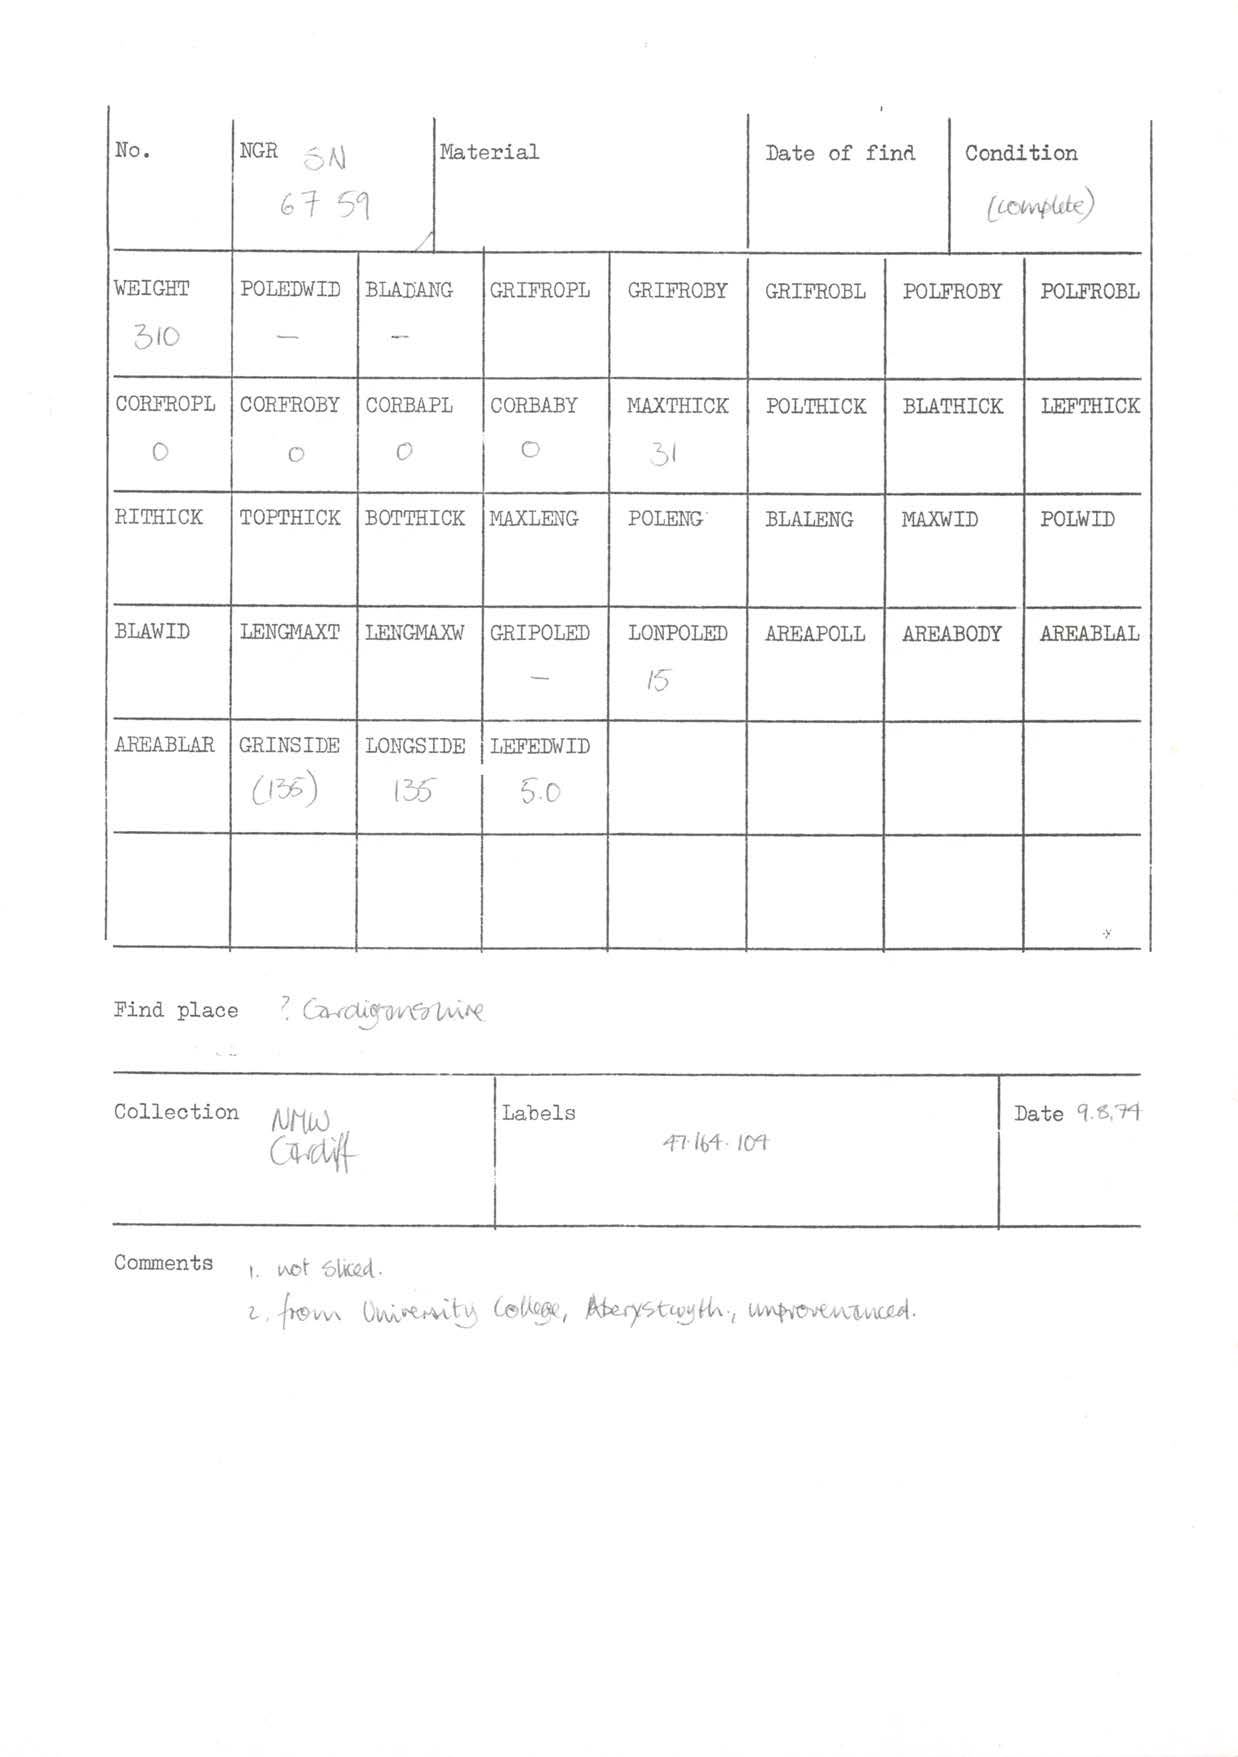 No. NGR SN Material Date of find Condition
67 59 (complete)
WEIGHT POLEDWID BLADANG GRIFROPL GRIFROBY GRIFROBL POLFROBY POLFROBL
310 — —
CORFROPL CORFROBY CORBAPL CORBABY MAXTHICK POLTHICK BLATHICK LEFTHICK
0 0 0 0 31
RITHICK TOPTHICK BOTTHICK MAXLENG POLENG BLALENG MAXWID POLWID
BLAWID LENGMAXT LENGMAXW GRIPOLED LONPOLED AREAPOLL AREABODY AREABLAL
— 15
AREABLAR GRINSIDE LONGSIDE LEFEDWID
(135) 135 5.0
Find place ? Cardiganshire
Collection NMW Labels Date 9.8.74
Cardiff 47.164.104
Comments 1. not sliced.
2. from University College, Aberystwyth., unprovenanced.